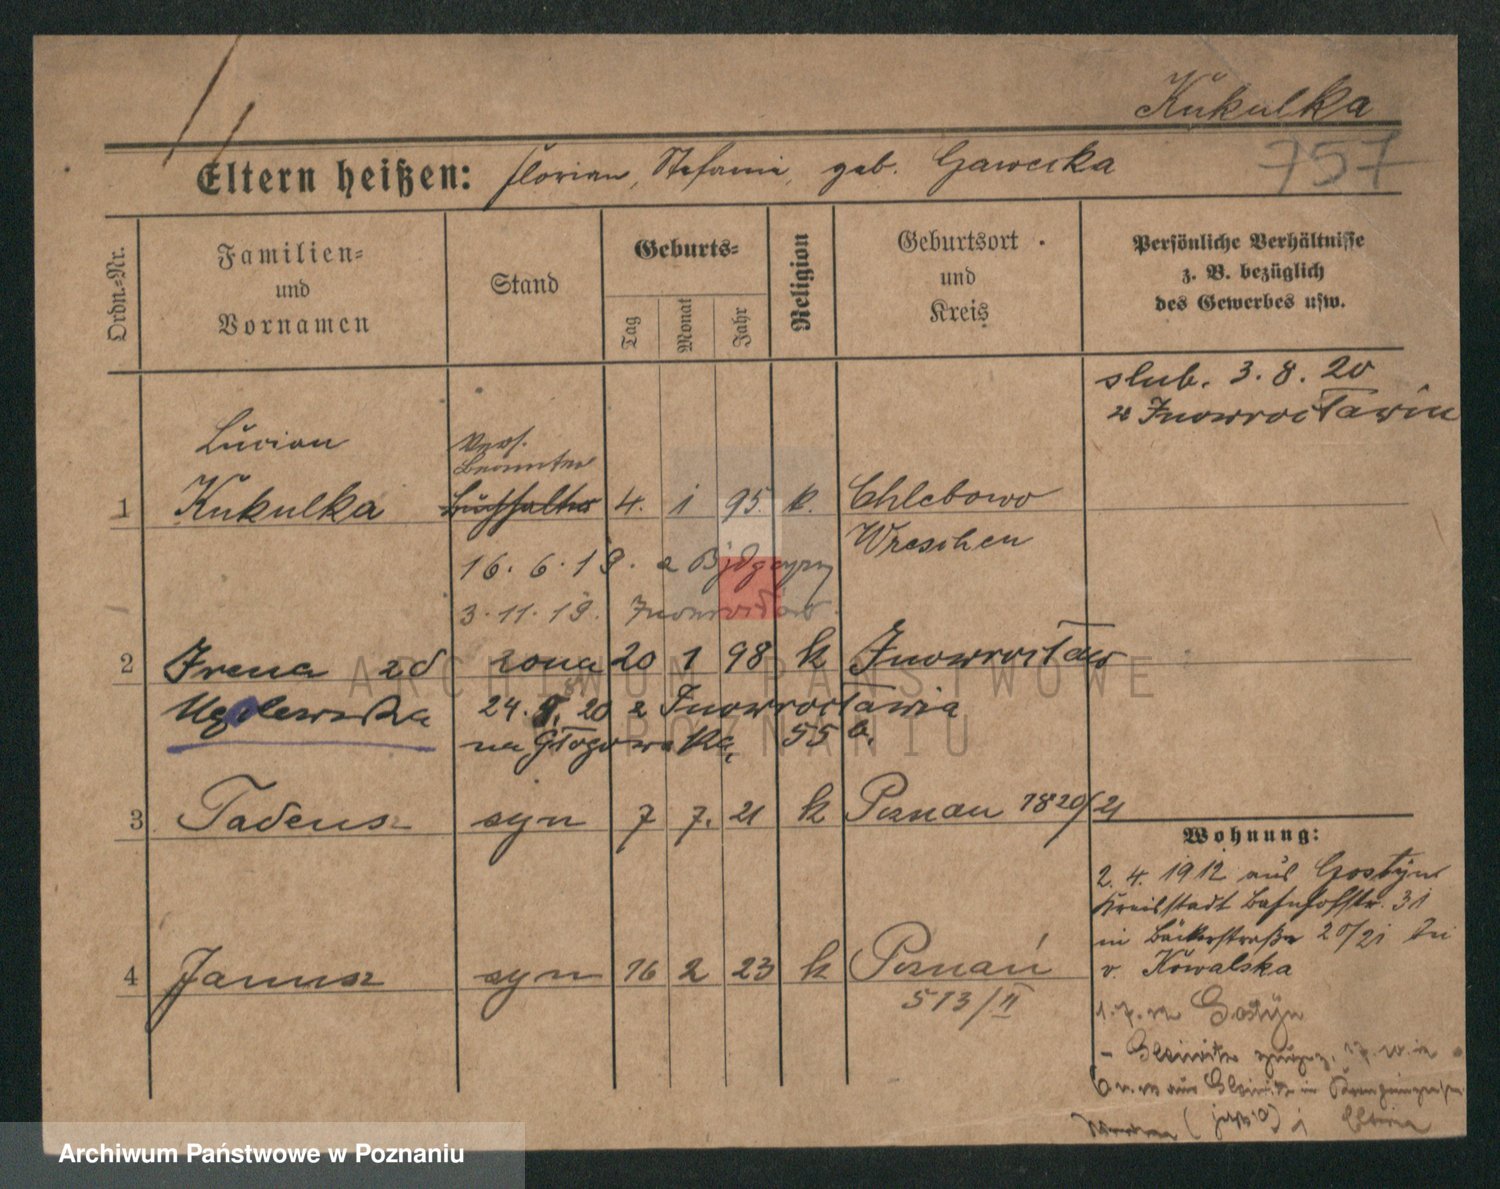 Kukulka
757
Eltern heißen: Florian, Stefania, geb. Gawecka
Ordn.-Nr.
Familien-
und
Vornamen
Stand
Geburts-
Tag
Monat
Jahr
Religion
Geburtsort
und
Kreis
Persönliche Verhältnisse
z. B. bezüglich
des Gewerbes usw.
slub. 3. 8. 20
w Inowrocławiu
Lucian
Vers.
Beamter
1 Kukulka Buchhalter 4. 1 95. k. Chlebowo
Wreschen
16. 6. 19. a Bydgoszcz
3. 11. 19. Inowrocław
2 Irena zd żona 20 1 98 k Inowrocław
24. 20 z Inowrocławia
na Głogowska, 55 b.
3 Tadeusz syn 7 7. 21 k Poznan 1820/21
Wohnung:
2. 4. 1912 aus Gostyn
Kreisstadt Bahnhofstr. 31
in Bäckerstraße 20/21 bei
v. Kowalska
4 Janusz syn 16 2 23 k Poznań
513/II
1. 7. Gostyn
ARCHIWUM PAŃSTWOWE
POZNANIU
Archiwum Państwowe w Poznaniu